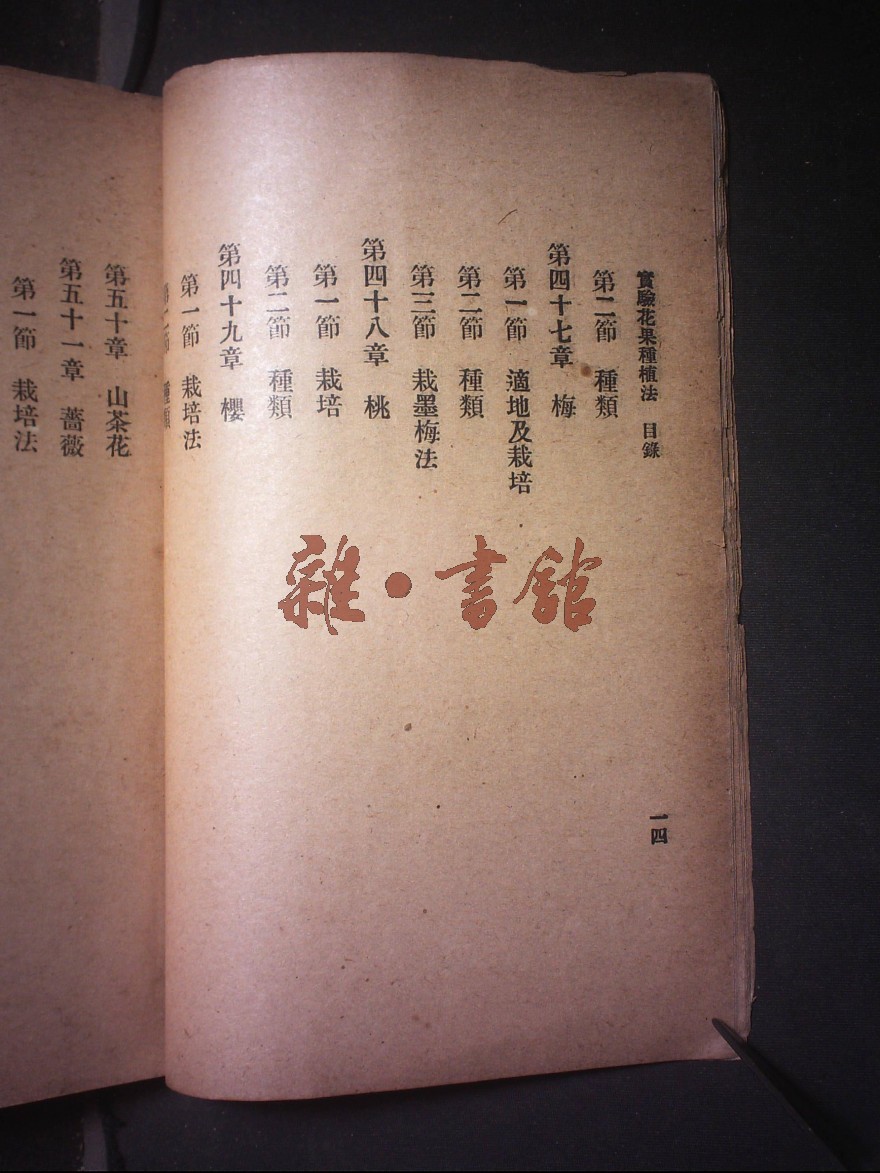 實驗花果種植法 目錄
一四
第二節 種類
第四十七章 梅
第一節 適地及栽培
第二節 種類
第三節 栽墨梅法
第四十八章 桃
第一節 栽培
第二節 種類
第四十九章 櫻
第一節 栽培法
第二節 種類
第五十章 山茶花
第五十一章 薔薇
第一節 栽培法
雜·書館